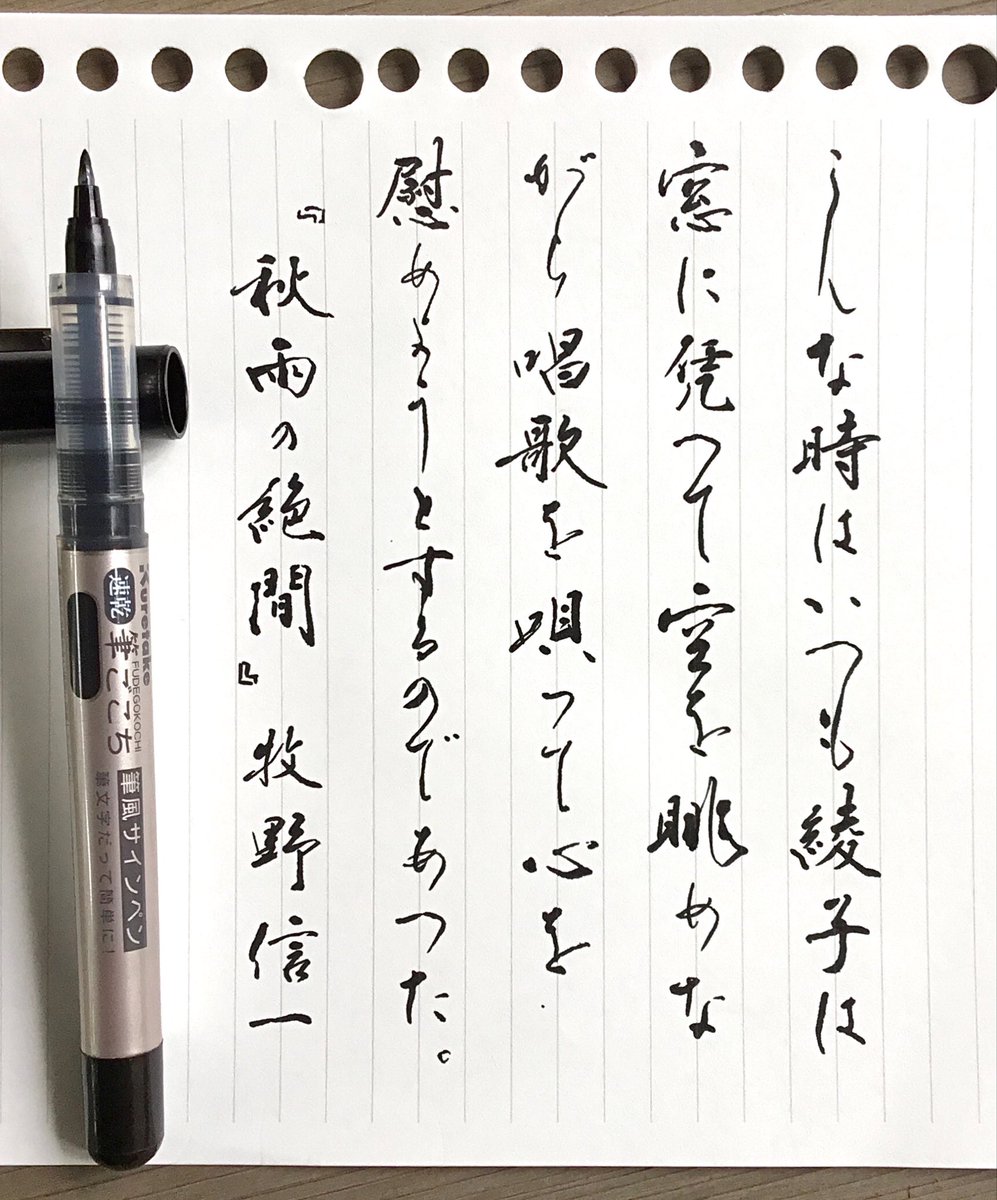 こんな時はいつも綾子は
窓に凭つて空を眺めな
がら唱歌を唄つて心を
慰めようとするのであつた。
『秋雨の絶間』牧野信一
Kuretake
速乾
筆ごこち
FUDEGOKOCHI
筆風サインペン
筆文字だって簡単に!